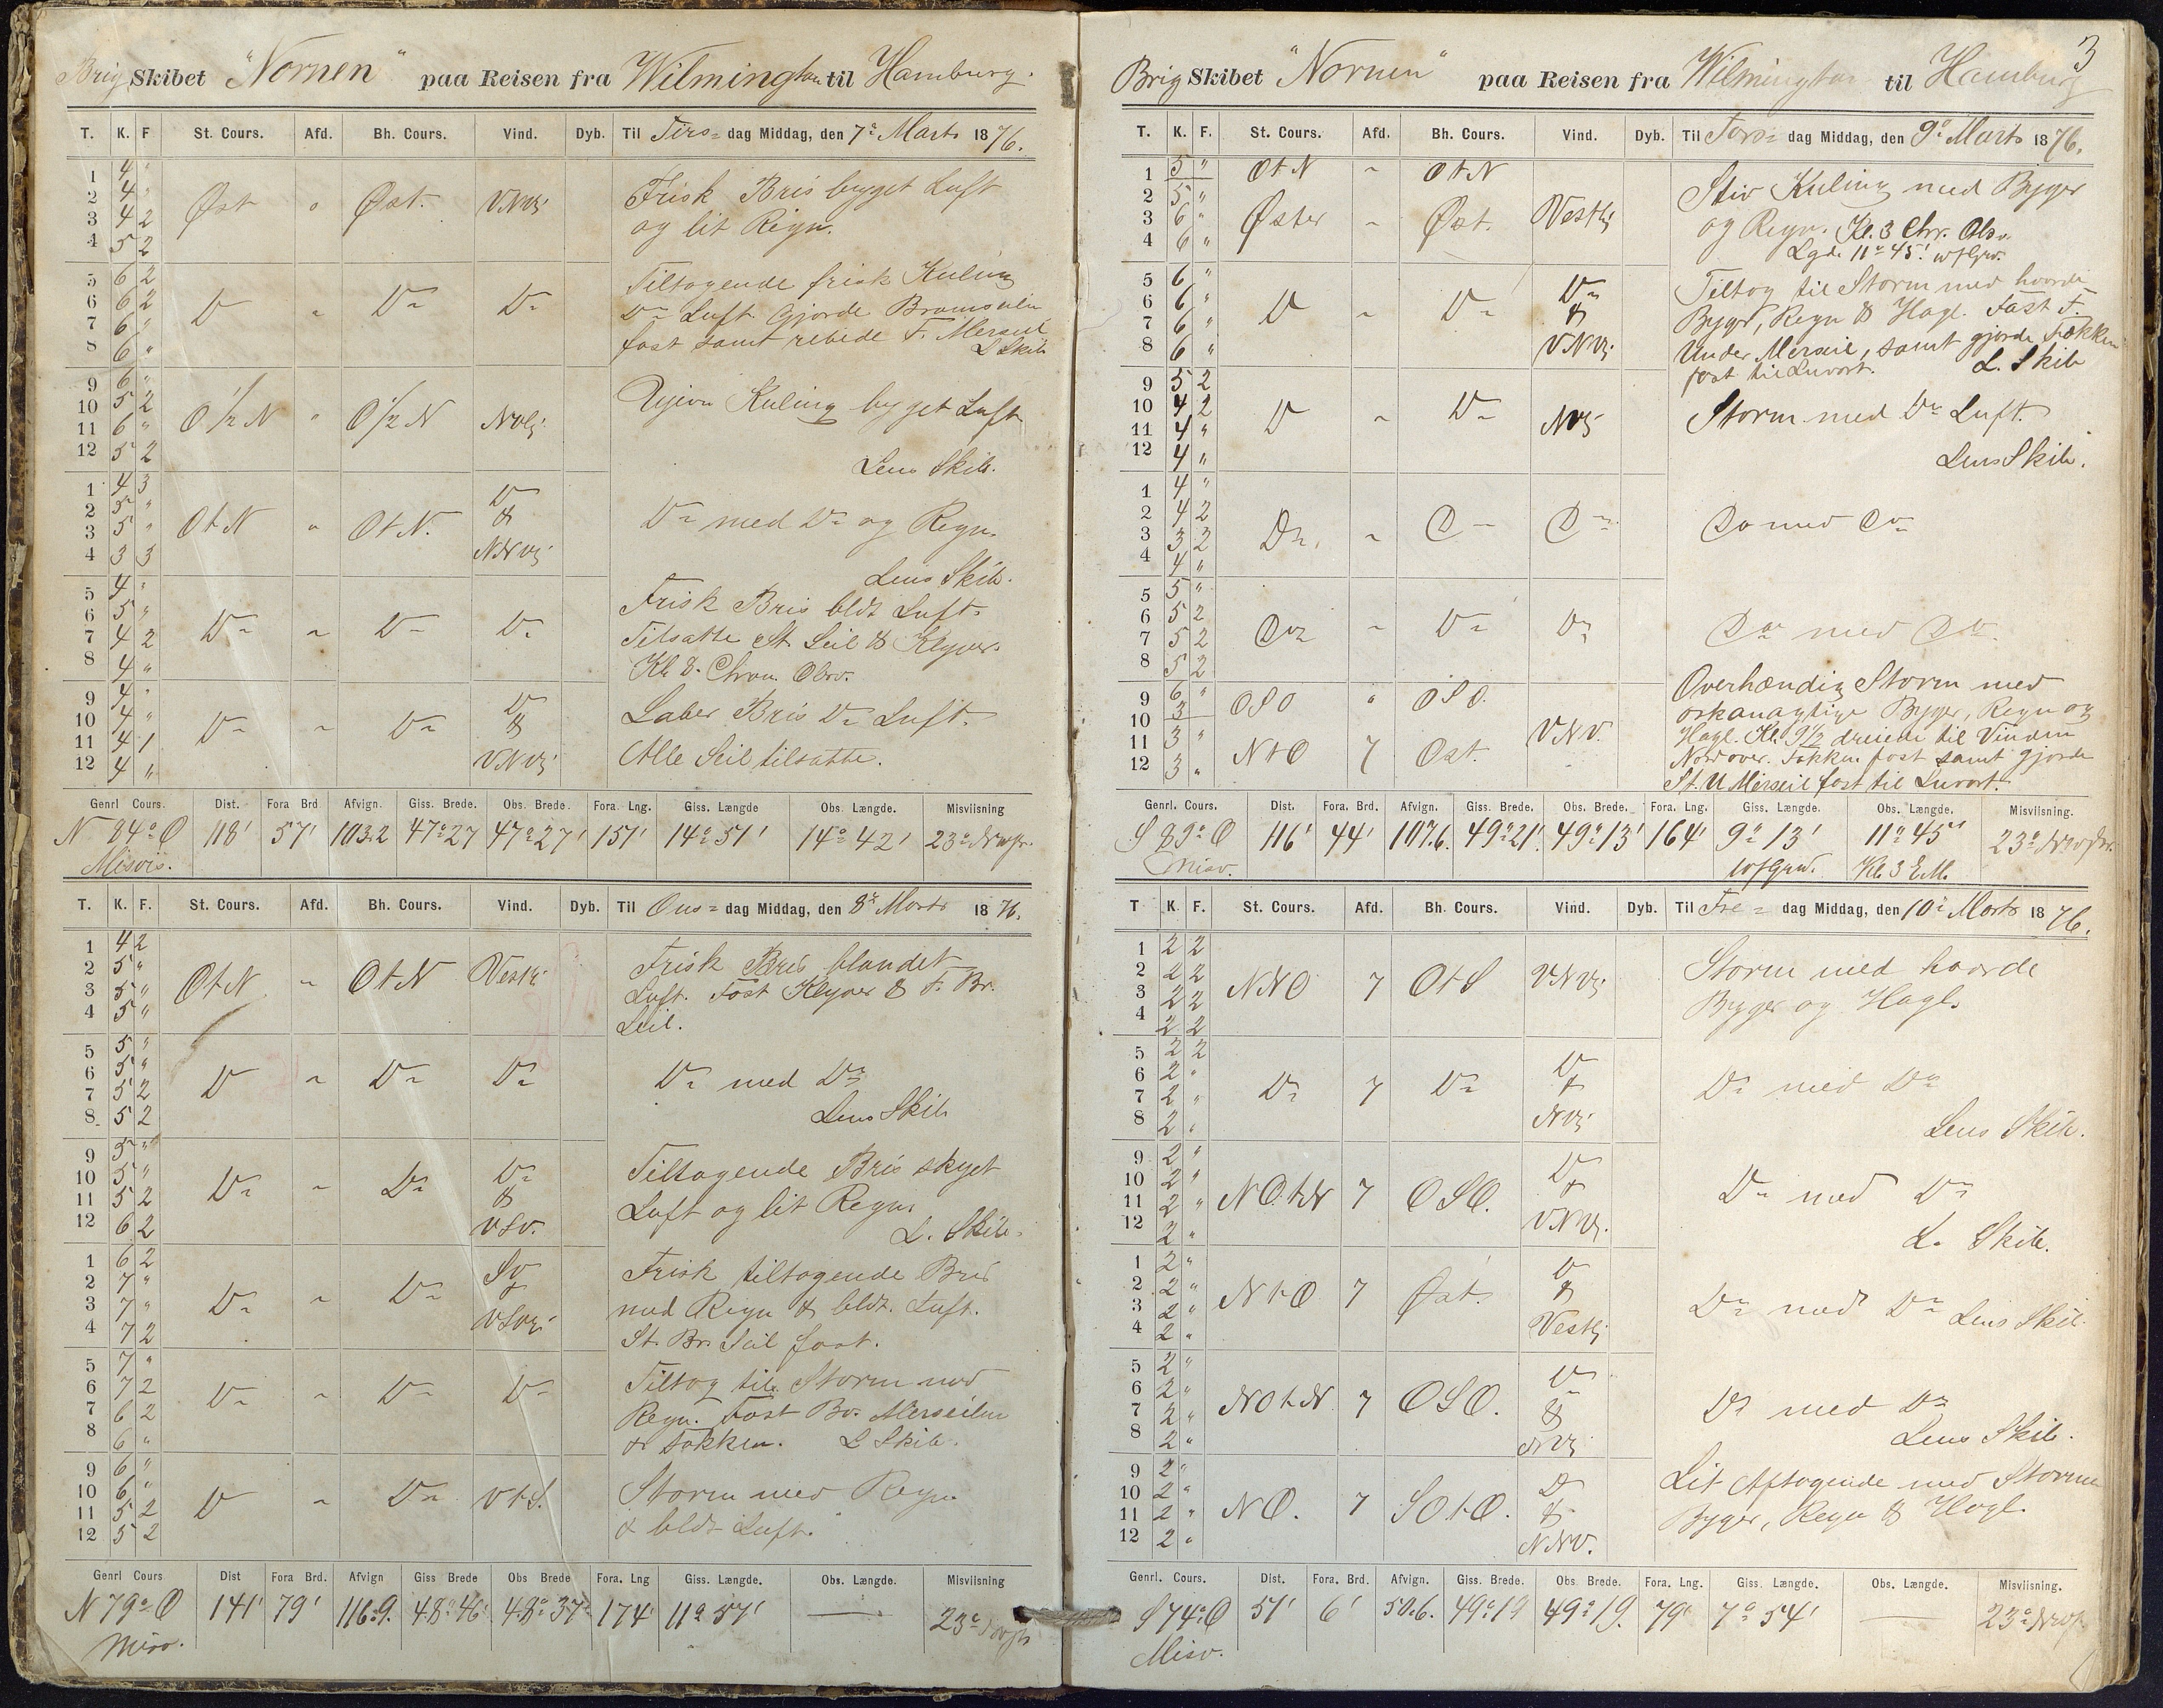 Brig Skibet "Nornen" paa Reisen fra Wilmington til Hamburg.
T. K. F St. Cours. Afd. Bh. Cours. Vind. Dyb. Til Tirs= dag Middag, den 7de Marts 1876.
1 4 "
2 4 "
3 4 2 Øst " Øst. VNVlig
4 5 2
Frisk Bris byget Luft
og lit Regn.
5 6 2
6 6 2
7 6 " Do " Do Do
8 6 "
Tiltagende frisk Kuling
Do Luft Gjorde Bramseilen
fast samt rebede F. Merseil
L Skib
9 6 "
10 5 2
11 6 " O 1/2 N " O 1/2 N NVlig
12 5 2
Ujevn Kuling byget Luft
Lens Skib.
1 4 3
2 5 "
3 5 " OtN " OtN. Do & NNVlig
4 3 3
Do med Do og Regn.
Lens Skib.
5 4 "
6 5 "
7 4 2 Do " Do Do
8 4 "
Frisk Bris bldt Luft.
Tilsatte St. Seil & Klyver.
Kl 8. Chron. Obsv.
9 4 "
10 4 "
11 4 1 Do " Do Do & VNVlig
12 4 "
Laber Bris Do Luft.
Alle Seil tilsatte.
Genrl Cours. Dist. Fora Brd Afvign. Giss. Brede. Obs. Brede. Fora. Lng. Giss. Længde Obs. Længde. Misviisning
N 84° O 118' 57' 103.2 47° 27 47° 27' 157' 14° 51' 14° 42' 23°
Misvis.
T. K. F. St. Cours. Afd. Bh. Cours. Vind. Dyb. Til Ons= dag Middag, den 8de Marts 1876.
1 4 2
2 5 "
3 5 " OtN " OtN Vestlig
4 5 "
Frisk Bris blandet
Luft. Fast Klyver & F. Br.
Seil.
5 5 "
6 5 "
7 5 2 Do " Do Do
8 5 2
Do med Do
Lens Skib
9 5 "
10 5 "
11 5 2 Do " Do Do & VSV.
12 6 2
Tiltagende Bris skyet
Luft og lit Regn.
L. Skib.
1 6 2
2 7 "
3 7 " Do " Do SV & VSVlig
4 7 2
Frisk tiltagende Bris
med Regn & bldt. Luft.
St. Br. Seil fast.
5 7 "
6 7 2
7 6 2 Do " Do Do
8 6 "
Tiltog til Storm med
Regn. Fast Bv. Merseilen
& Fokken. L Skib.
9 6 "
10 6 "
11 5 2 Do " Do VtS.
12 5 2
Storm med Regn
& bldt Luft.
Genrl Cours Dist Fora Brd. Afvign Giss Brede Obs Brede Fora. Lng Giss. Længde. Obs. Længde. Misviisning
N 79° O 141' 79' 116.9. 48° 46' 48° 37' 174' 11° 57' — 23°
Misv.
3
Brig Skibet "Nornen" paa Reisen fra Wilmington til Hamburg
T. K. F. St. Cours. Afd. Bh. Cours. Vind. Dyb. Til Tors= dag Middag, den 9de Marts 1876.
1 5 " OtN " OtN
2 5 "
3 6 " Øster " Øst. Vestlig
4 6 "
Stiv Kuling med Byger
og Regn. Kl. 3 Chr. Obsv.
Lgd. 11° 45'. wfGrw.
5 6 "
6 6 "
7 6 " Do " Do Do & VNVlig
8 6 "
Tiltog til Storm med haarde
Byger, Regn & Hagl. Fast F.
Under Merseil, samt gjorde Fokken
fast til Luvart. L. Skib
9 5 2
10 4 2
11 4 " Do " Do NVlig
12 4 "
Storm med Do Luft.
Lens Skib.
1 4 "
2 4 2
3 3 2 Do. " Do Do
4 4 "
Do med Do
5 5 "
6 5 2
7 5 2 Do " Do Do
8 5 2
Do med Do
9 6 " OSO " OSO.
10 3
11 3 " NtO 7 Øst. VNV.
12 3 "
Overhændig Storm med
orkanagtige Byger, Regn og
Hagl. Kl. 9 1/2 dreiede til Vinden
Nordover. Fokken fast samt gjorde
St. U Merseil fast til Luvart.
Genrl. Cours. Dist. Fora. Brd. Afvign. Giss. Brede. Obs. Brede. Fora. Lng. Giss. Længde. Obs. Længde. Misviisning.
S 89° O 116' 44' 107.6. 49° 21'. 49° 13' 164' 9° 13' 11° 45' 23°
Misv. wfGrw. Kl. 3 E.M.
T K. F. St. Cours. Afd. Bh. Cours. Vind. Dyb. Til Fre= dag Middag, den 10de Marts 1876.
1 2 2
2 2 2
3 2 2 NNO 7 OtS VNVlig
4 2 2
Storm med haarde
Byger og Hagl.
5 2 2
6 2 "
7 2 " Do 7 Do Do & NVlig
8 2 "
Do med Do
Lens Skib.
9 2 "
10 2 "
11 2 " NOtN 7 OSO. Do & VNVlig.
12 2 "
Do med Do
L. Skib.
1 2 "
2 2 "
3 2 " NtO 7 Øst. Do & Vestlig
4 2 "
Do med Do Lens Skib.
5 2 "
6 2 "
7 2 " NOtN 7 OSO. Do & NVlig
8 2 "
Do med Do
Lens Skib.
9 2 "
10 2 "
11 2 " NO. 7 SOtO. Do & NNV.
12 2 "
Lit Aftagende med Storm
Byger, Regn & Hagl.
Genrl. Cours. Dist. Fora. Brd. Afvign. Giss. Brede. Obs. Brede. Fora. Lng. Giss. Længde. Obs. Længde. Misviisning.
S 74° O 51' 6' 50.6. 49° 19 49° 19. 79' 7° 54' — 23°
Misv.